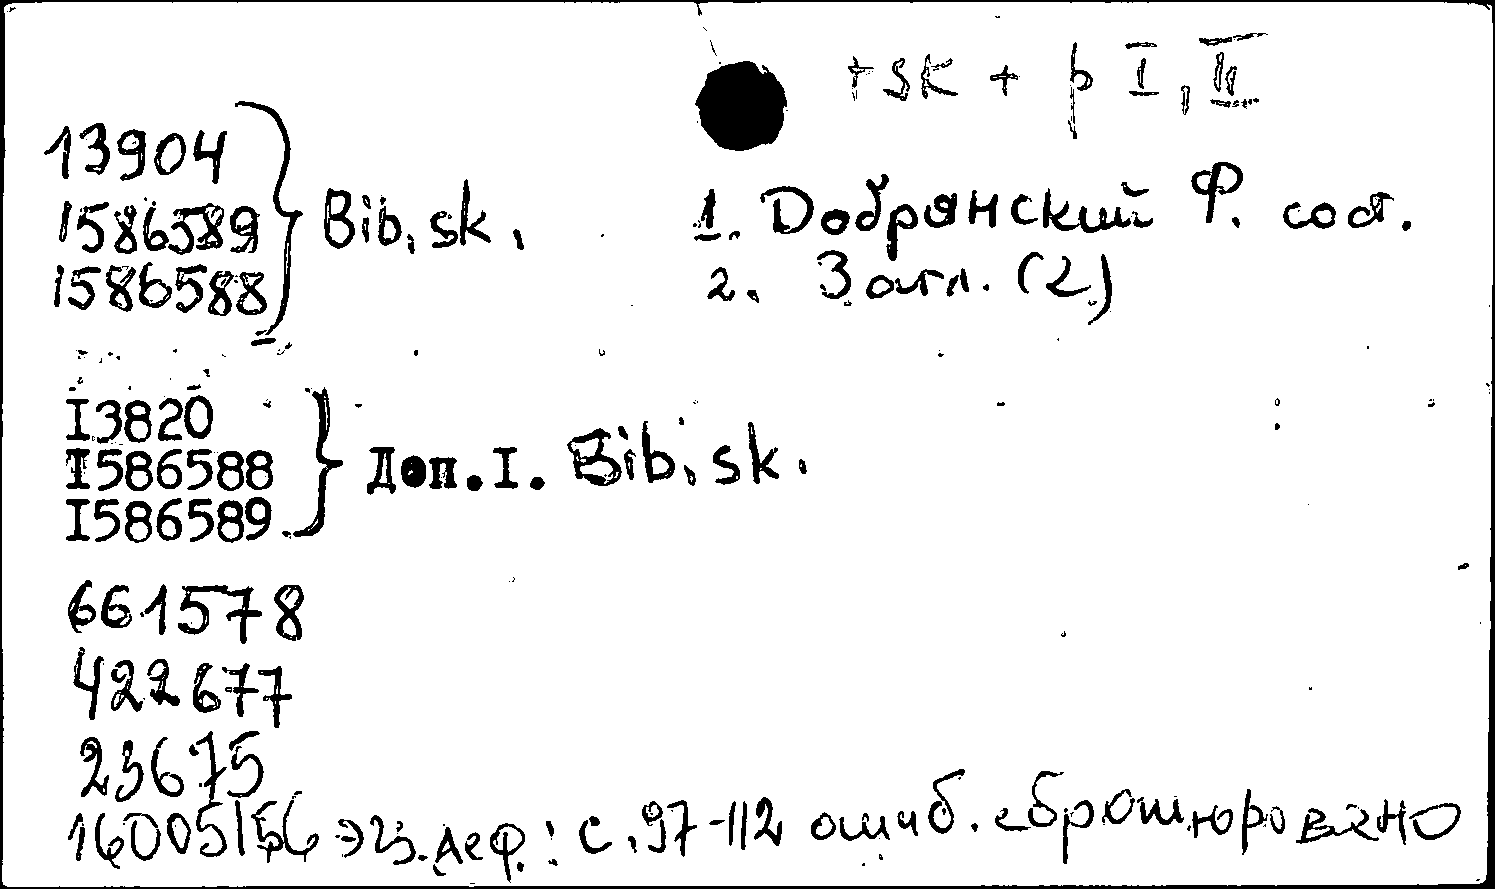 + sk + p I, II
13904
1586589
1586588
Bib. sk.
1. Добрянский Ф. сост.
2. Загл. (2)
I3820
I586588
I586589
Доп. I. Bib. sk.
661578
422677
23675
16005156 экз. деф.: с. 97-112 ошиб. сброшюровано